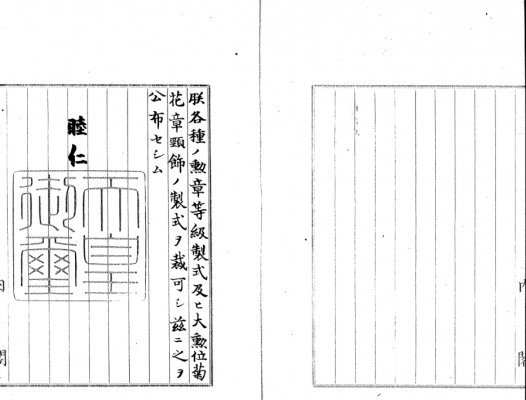 朕各種ノ勲章等級製式及ヒ大勲位菊
花章頸飾ノ製式ヲ裁可シ茲ニ之ヲ
公布セシム
睦仁
天皇
御璽
内閣
内閣